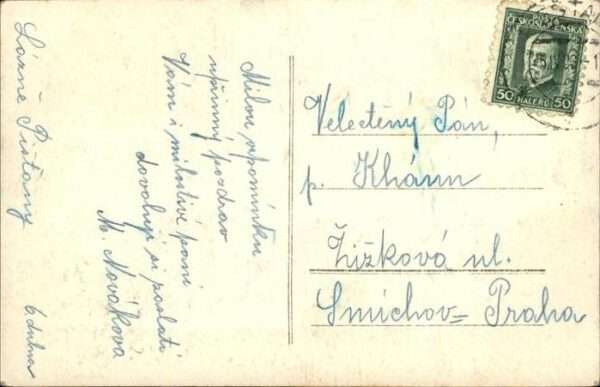 Lázně Píšťany
6. dubna
Milou vzpomínku
upřímný pozdrav
Vám i milostivé paní
dovoluji si poslati
M. Nováková
ČESKOSLOVENSKÁ
50 HALÉŘŮ 50
Velectěný Pán,
p. Khánn
Žižková ul.
Smíchov=Praha